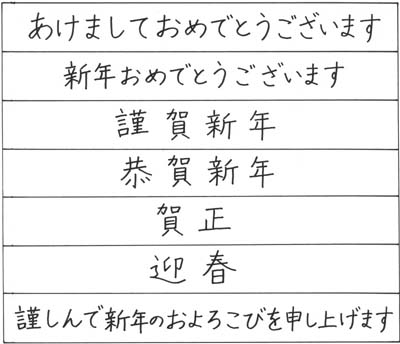 あけましておめでとうございます
新年おめでとうございます
謹賀新年
恭賀新年
賀正
迎春
謹しんで新年のおよろこびを申し上げます